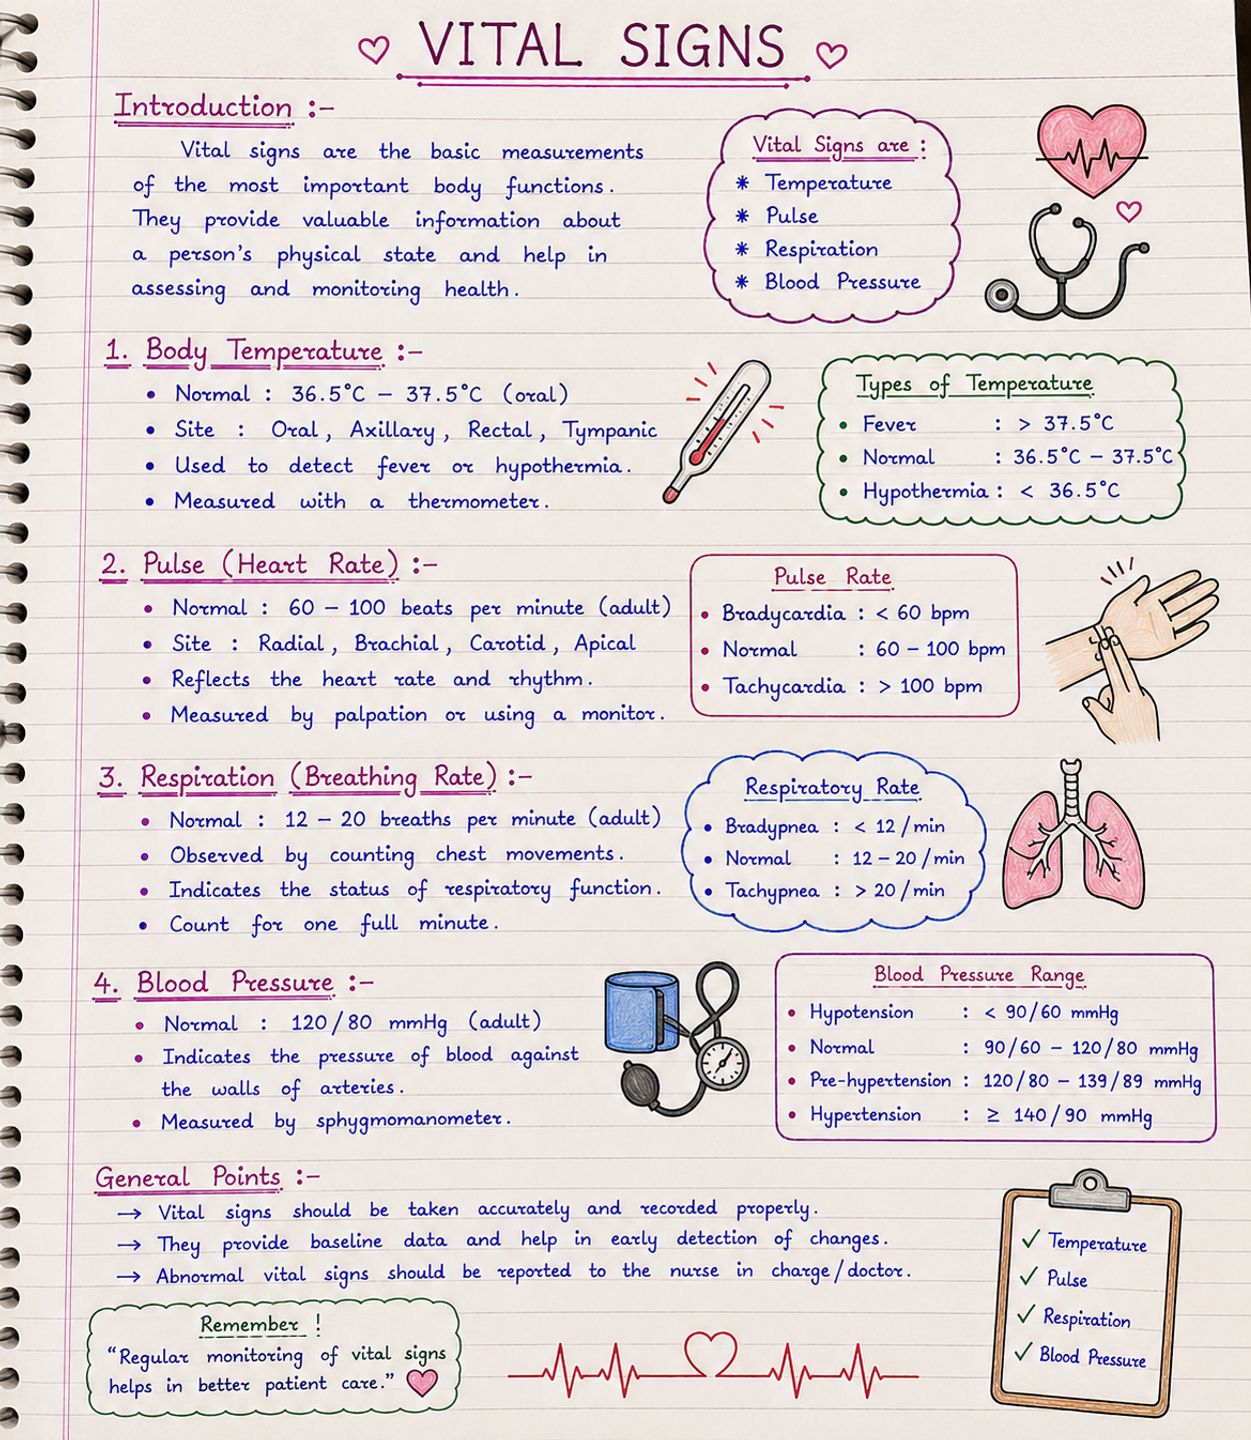 VITAL SIGNS
Introduction :-
Vital signs are the basic measurements
of the most important body functions.
They provide valuable information about
a person's physical state and help in
assessing and monitoring health.
Vital Signs are :
* Temperature
* Pulse
* Respiration
* Blood Pressure
1. Body Temperature :-
• Normal : 36.5°C – 37.5°C (oral)
• Site : Oral, Axillary, Rectal, Tympanic
• Used to detect fever or hypothermia.
• Measured with a thermometer.
Types of Temperature
• Fever : > 37.5°C
• Normal : 36.5°C – 37.5°C
• Hypothermia : < 36.5°C
2. Pulse (Heart Rate) :-
• Normal : 60 – 100 beats per minute (adult)
• Site : Radial, Brachial, Carotid, Apical
• Reflects the heart rate and rhythm.
• Measured by palpation or using a monitor.
Pulse Rate
• Bradycardia : < 60 bpm
• Normal : 60 – 100 bpm
• Tachycardia : > 100 bpm
3. Respiration (Breathing Rate) :-
• Normal : 12 – 20 breaths per minute (adult)
• Observed by counting chest movements.
• Indicates the status of respiratory function.
• Count for one full minute.
Respiratory Rate
• Bradypnea : < 12 / min
• Normal : 12 – 20 / min
• Tachypnea : > 20 / min
4. Blood Pressure :-
• Normal : 120/80 mmHg (adult)
• Indicates the pressure of blood against
the walls of arteries.
• Measured by sphygmomanometer.
Blood Pressure Range
• Hypotension : < 90/60 mmHg
• Normal : 90/60 – 120/80 mmHg
• Pre-hypertension : 120/80 – 139/89 mmHg
• Hypertension : ≥ 140/90 mmHg
General Points :-
→ Vital signs should be taken accurately and recorded properly.
→ They provide baseline data and help in early detection of changes.
→ Abnormal vital signs should be reported to the nurse in charge/doctor.
Remember !
"Regular monitoring of vital signs
helps in better patient care."
✓ Temperature
✓ Pulse
✓ Respiration
✓ Blood Pressure